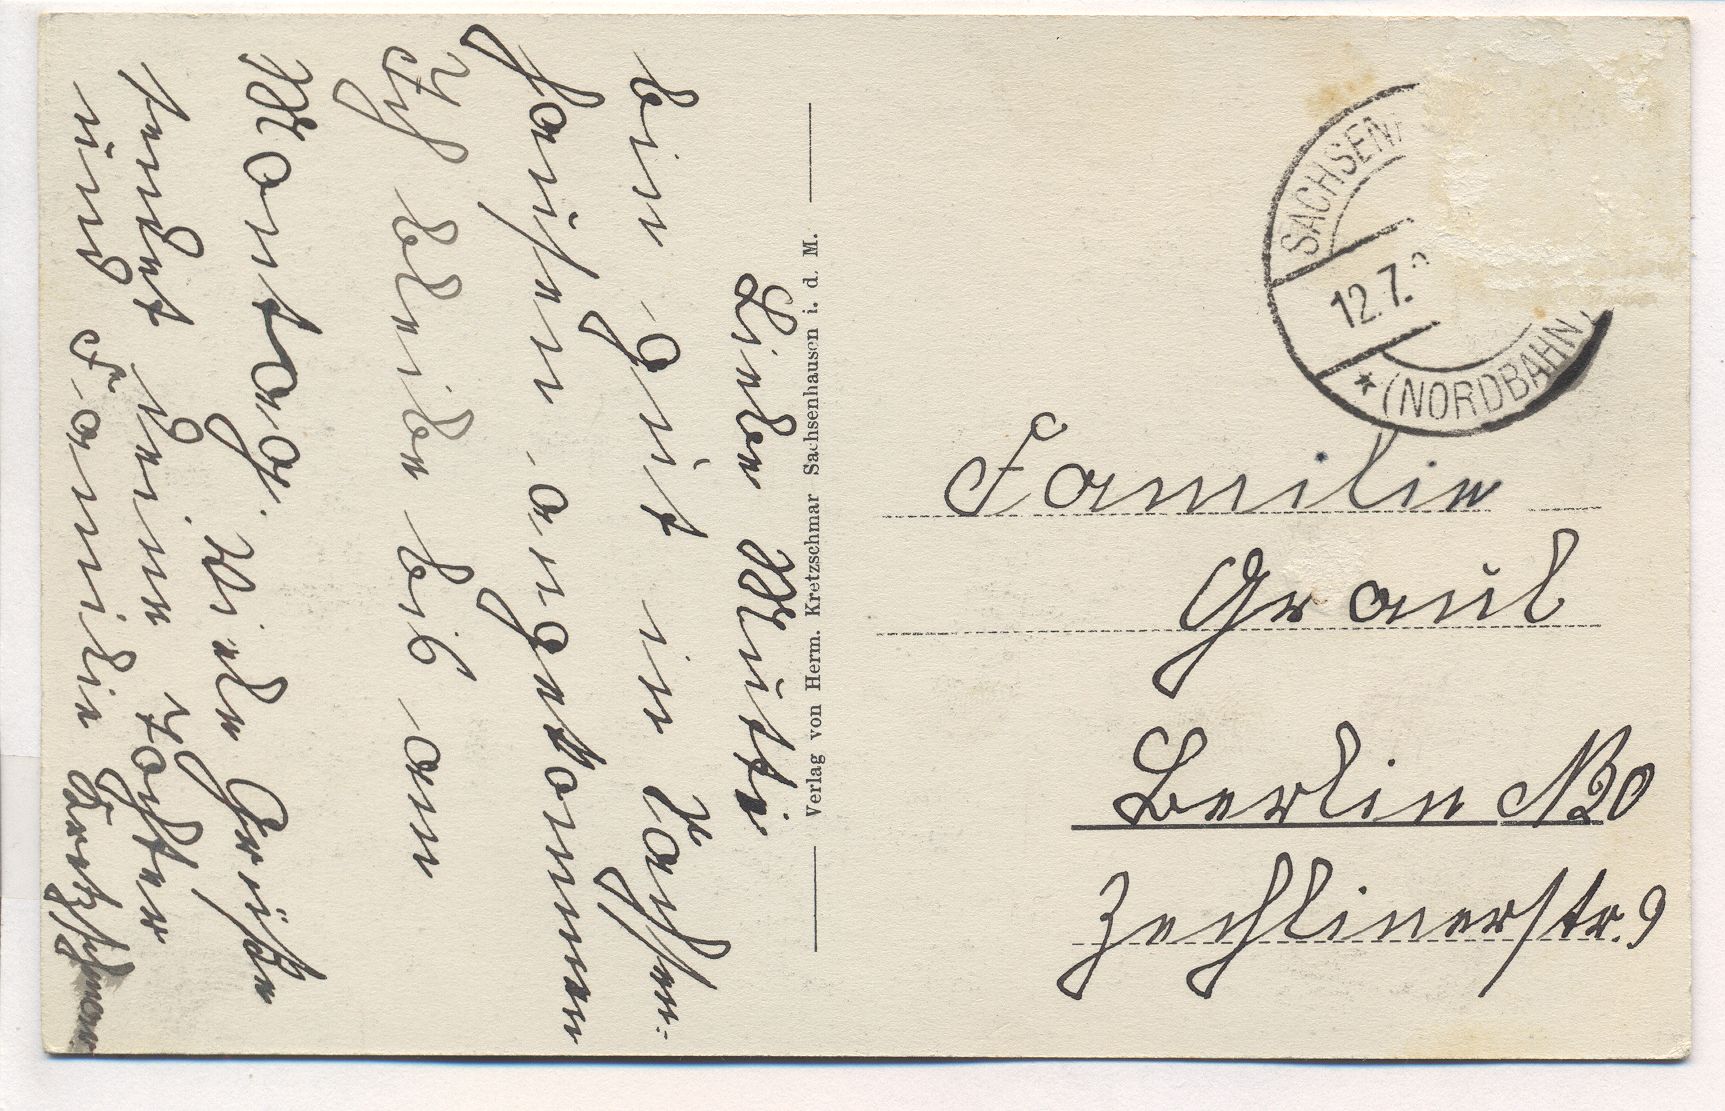 Liebe Mutti
bin gut in Sachsen-
hausen angekommen
Ich bleibe bis am
Montag. Viele Grüße
sendet deine Tochter
und Familie Kretzschmar
Verlag von Herm. Kretzschmar Sachsenhausen i. d. M.
SACHSEN
12.7.
* (NORDBAHN)
Familie
Graul
Berlin N20
Zechlinerstr. 9